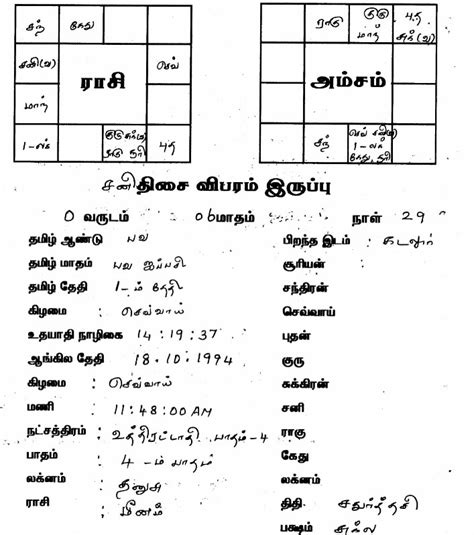 சந் கேது ராகு குரு மாந் புத சுக்(வ)
சனி(வ) செவ்
ராசி அம்சம்
மாந்
1-லக் புத சந்
சனி திசை விபரம் இருப்பு
0 வருடம் 06 மாதம் நாள் 29
தமிழ் ஆண்டு பவ பிறந்த இடம் : கடலூர்
தமிழ் மாதம் பவ ஐப்பசி சூரியன் :
தமிழ் தேதி 1-ம் தேதி சந்திரன்
கிழமை : செவ்வாய் செவ்வாய்
உதயாதி நாழிகை 14:19:37 புதன்
ஆங்கில தேதி 18.10.1994 குரு
கிழமை : செவ்வாய் சுக்கிரன்
மணி : 11:48:00 AM சனி
நட்சத்திரம் : உத்திரட்டாதி பாதம்-4 ராகு
பாதம் 4-ம் பாதம் கேது
லக்னம் : தனுசு லக்னம்
ராசி : மீனம் திதி சதுர்த்தசி
பக்ஷம் சுக்ல